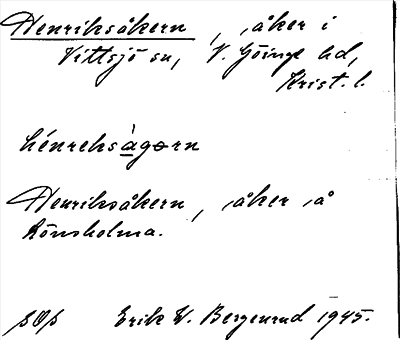 Henriksåkern, åker i
Vittsjö sn, V. Göinge hd,
Krist. l.
hénreksàgɔrn
Henriksåkern, åker å
Rönsholma.
Erik W. Bergenrud 1945.